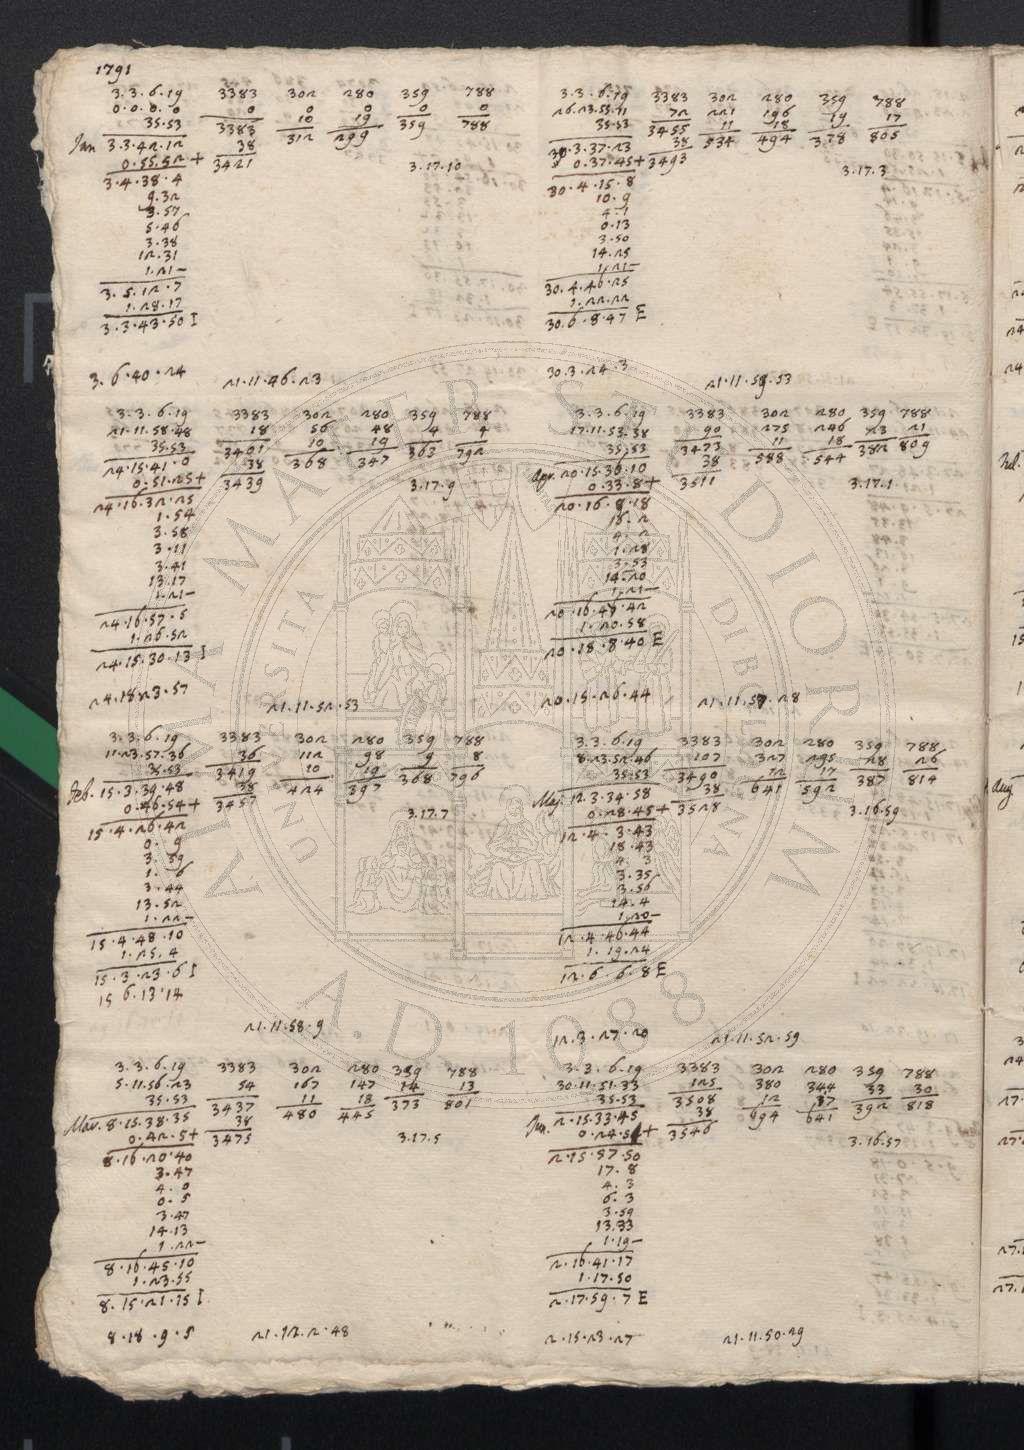 1791
3.3.6.19 3383 302 280 359 788
0.0.0.0 0 0 0 0 0
35.53 3383 10 19 359 788
Jan 3.3.42.12 38 312 299
0.55.52+ 3421 3.17.10
3.4.38.4
9.32
3.57
5.46
3.38
12.31
1.21-
3.5.12.7
1.28.17
3.3.43.50 I
3.6.40.24 21.11.46.23
3.3.6.19 3383 302 280 359 788
21.11.58.48 18 56 48 4 4
35.53 3401 10 19 363 792
24.15.41.0 38 368 347
0.51.25+ 3439 3.17.9
24.16.32.25
1.54
3.58
3.11
3.41
13.17
1.21-
24.16.57.5
1.26.52
24.15.30.13 I
24.18.23.57 21.11.52.53
3.3.6.19 3383 302 280 359 788
11.23.57.36 36 112 98 9 8
35.53 3419 10 19 368 796
Feb. 15.3.39.48 38 424 397
0.46.54+ 3457 3.17.7
15.4.26.42
0.9
3.59
1.6
3.44
13.52
1.22-
15.4.48.10
1.25.4
15.3.23.6 I
15 6.13.14
21.11.58.9
3.3.6.19 3383 302 280 359 788
5.11.56.23 54 167 147 14 13
35.53 3437 11 18 373 801
Mar. 8.15.38.35 38 480 445
0.42.5+ 3475 3.17.5
8.16.20.40
3.47
4.0
0.5
3.47
14.13
1.22-
8.16.45.10
1.23.55
8.15.21.15 I
8.18.9.5 21.12.2.48
3.3.6.19 3383 302 280 359 788
26.23.55.11 72 221 196 19 17
35.53 3455 11 18 378 805
30.3.37.23 38 534 494
0.37.45+ 3493 3.17.3
30.4.15.8
10.9
4.1
0.13
3.50
14.25
1.21-
30.4.46.25
1.22.22
30.6.8.47 E
30.3.24.3 21.11.59.53
3.3.6.19 3383 302 280 359 788
17.11.53.58 90 275 246 23 21
35.53 3473 11 18 382 809
Apr. 20.15.36.10 38 588 544
0.33.8+ 3511 3.17.1
20.16.9.18
16.2
4.2
1.28
3.53
14.20
1.21-
20.16.47.42
1.20.58
20.18.8.40 E
20.15.26.44 21.11.57.28
3.3.6.19 3383 302 280 359 788
8.23.52.46 107 327 295 28 26
35.53 3490 12 17 387 814
Maj. 12.3.34.58 38 641 592
0.28.45+ 3528 3.16.59
12.4.3.43
18.43
4.3
3.35
3.56
14.4
1.20-
12.4.46.44
1.19.24
12.6.6.8 E
12.3.27.20 21.11.52.59
3.3.6.19 3383 302 280 359 788
30.11.51.33 125 380 344 33 30
35.53 3508 12 17 392 818
Jun. 2.15.33.45 38 694 641
0.24.5+ 3546 3.16.57
2.15.57.50
17.8
4.3
6.3
3.59
13.33
1.19-
2.16.41.17
1.17.50
2.17.59.7 E
2.15.23.27 21.11.50.29
Aug
ALMA MATER STUDIORUM
A.D. 1088